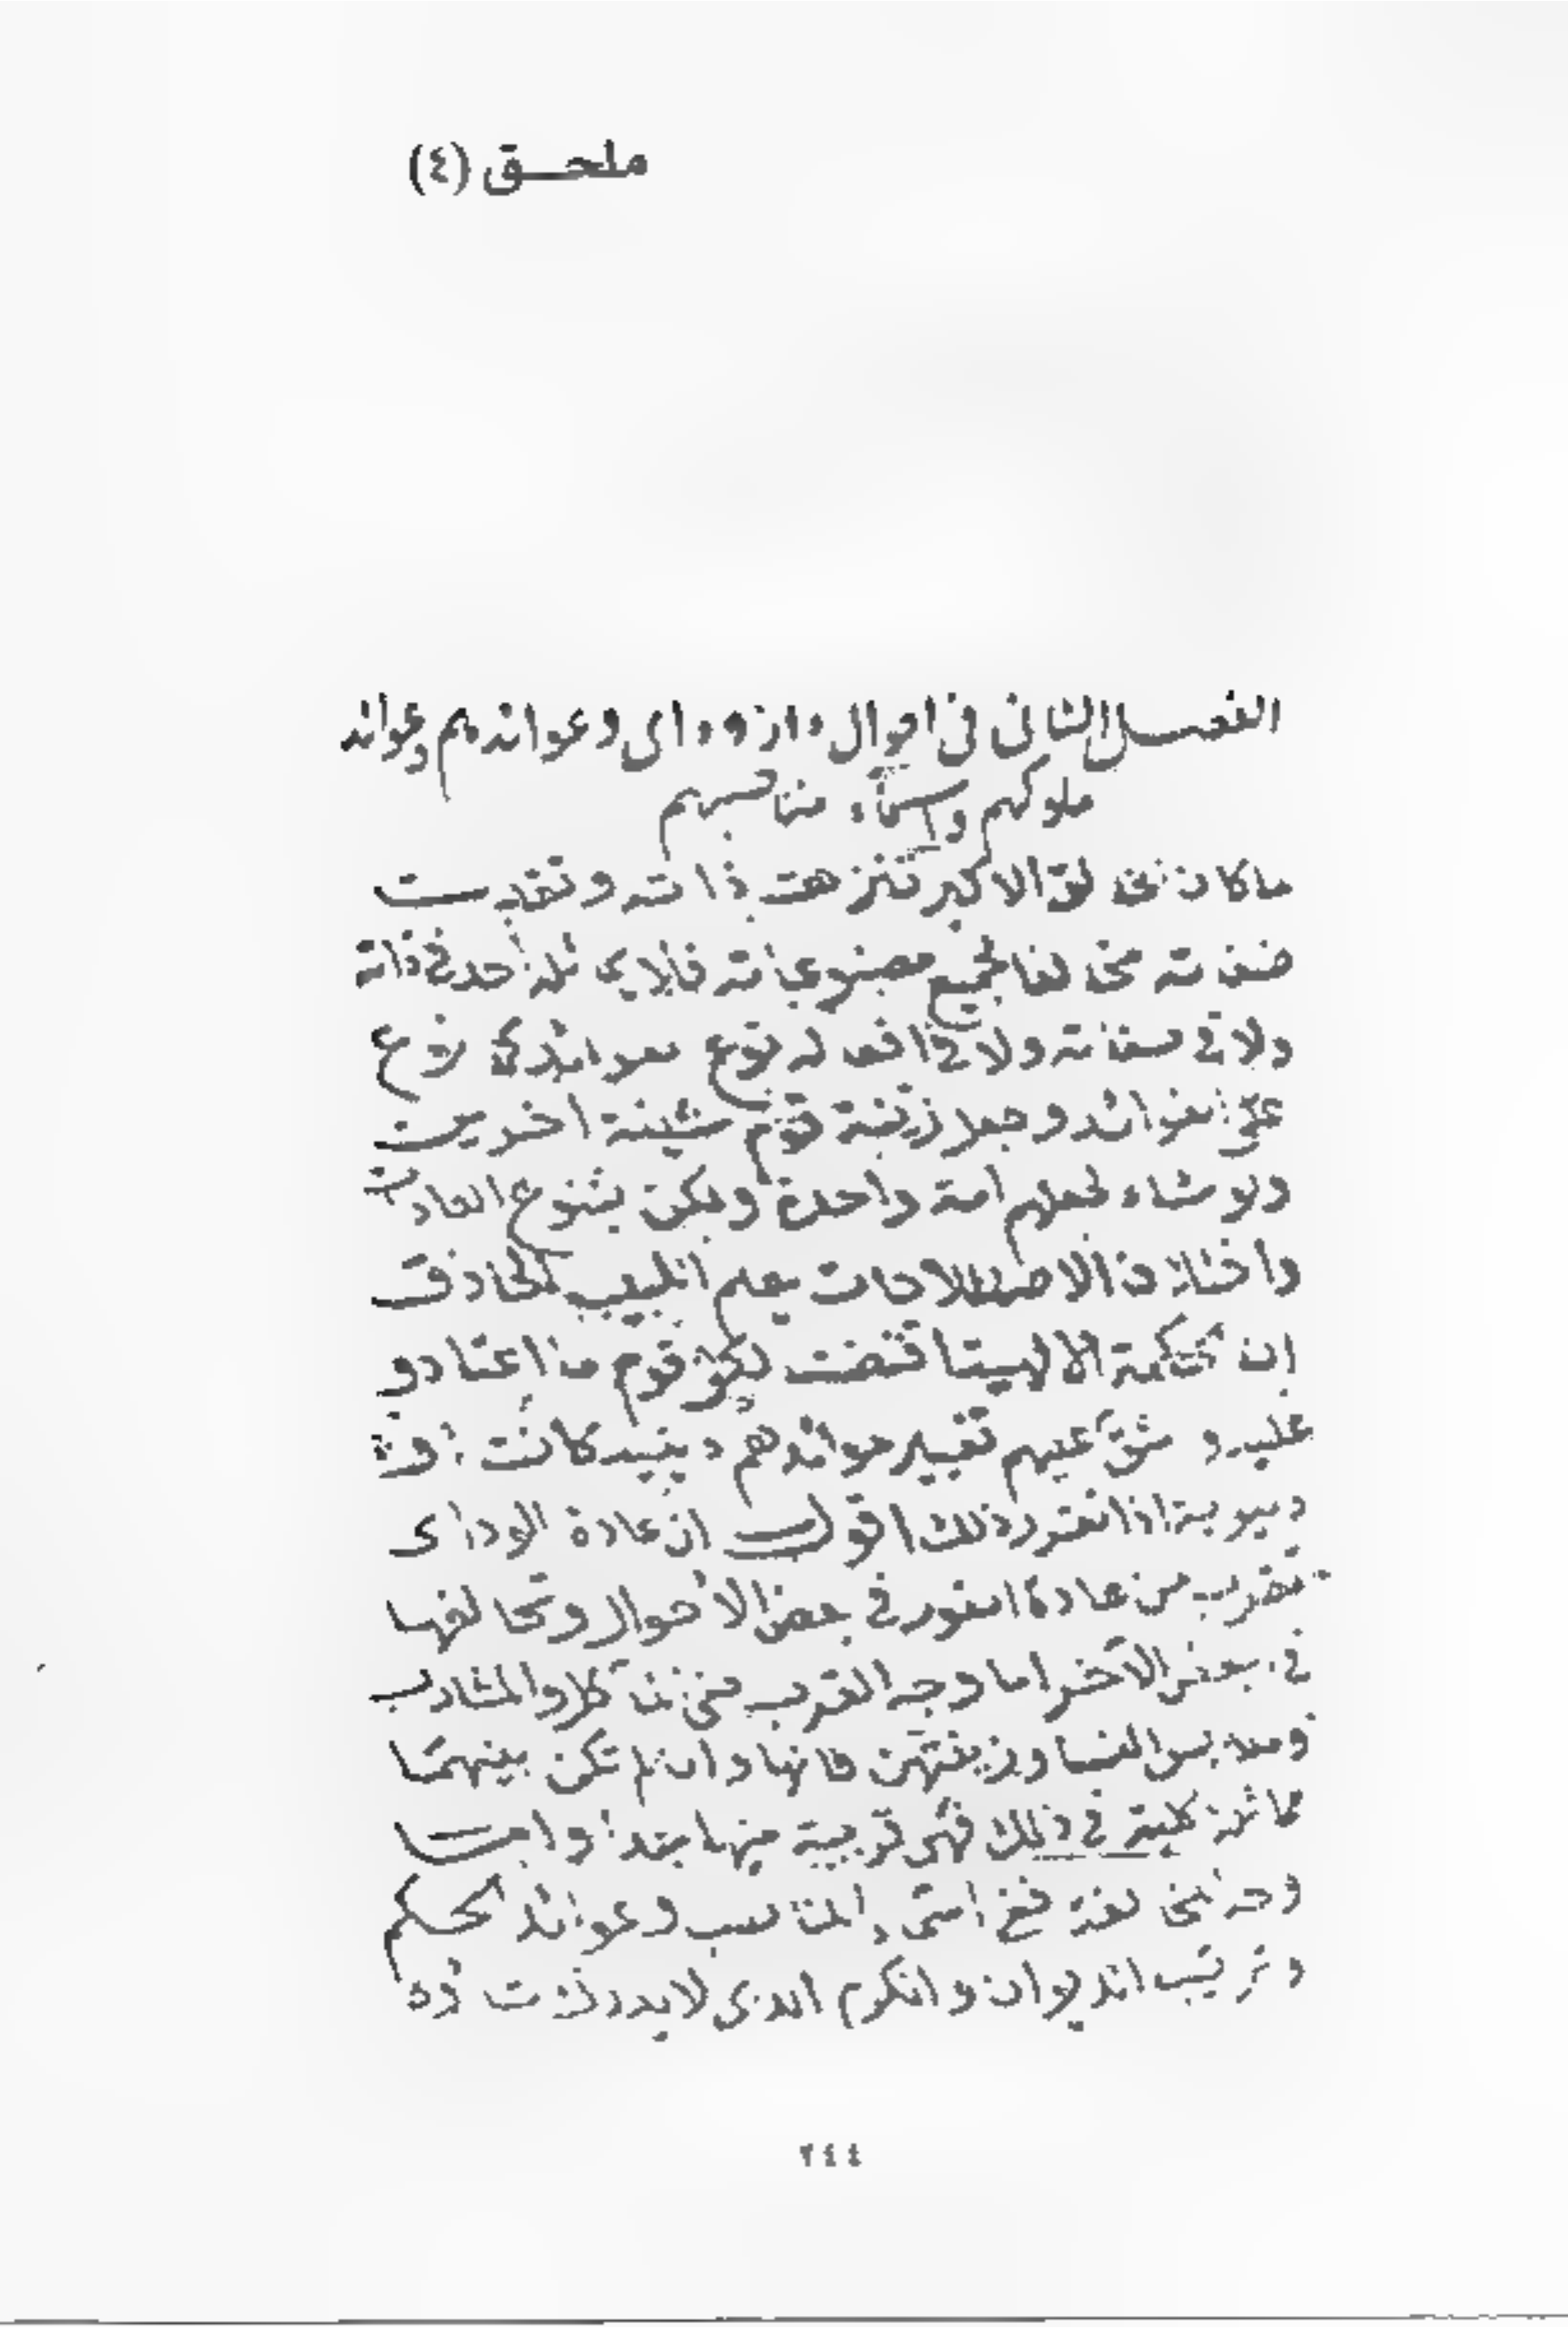 ملحق (٤)
الفصل الثانى فى احوال دار وداى وعوائدهم وعوائد
ملوكهم واسماء مناصبهم
لما كان الخالق الاكبر تنزهت ذاته وتقدست
صفاته مخالفا لجميع مصنوعاته فلا يماثله احد فى ذاته
ولا فى صفاته ولا فى افعاله نوع عوائد كل نوع
على انفراد وجعل زينة قوم شينة اخرين
ولو شاء لجعلهم امة واحدة ولكن بتنوع العادات
واختلاف الاصطلاحات يعلم اللبيب الحاذق
ان الحكمة الالهية اقتضت لكل قوم ما اعتادو
عليه و شق عليهم تغيير عوائدهم دينية كانت او
دنيوية اذا تقرر ذلك اقول ان عادة الوداى
تقرب من عادة الفور فى بعض الاحوال وتخالفها
فى بعض الآخر اما وجه القرب فمن المآكل والمشارب
وملابس النسا وزينتهن فانها وان لم تكن بينهما
مماثلة كلية فى ذلك فهى قريبة منها جدا واما
وجه المخالفة ففى اسماء المناصب وعوائد الحكم
وترتيب الديوان والكرم الذى لا يدركه
٢٤٤